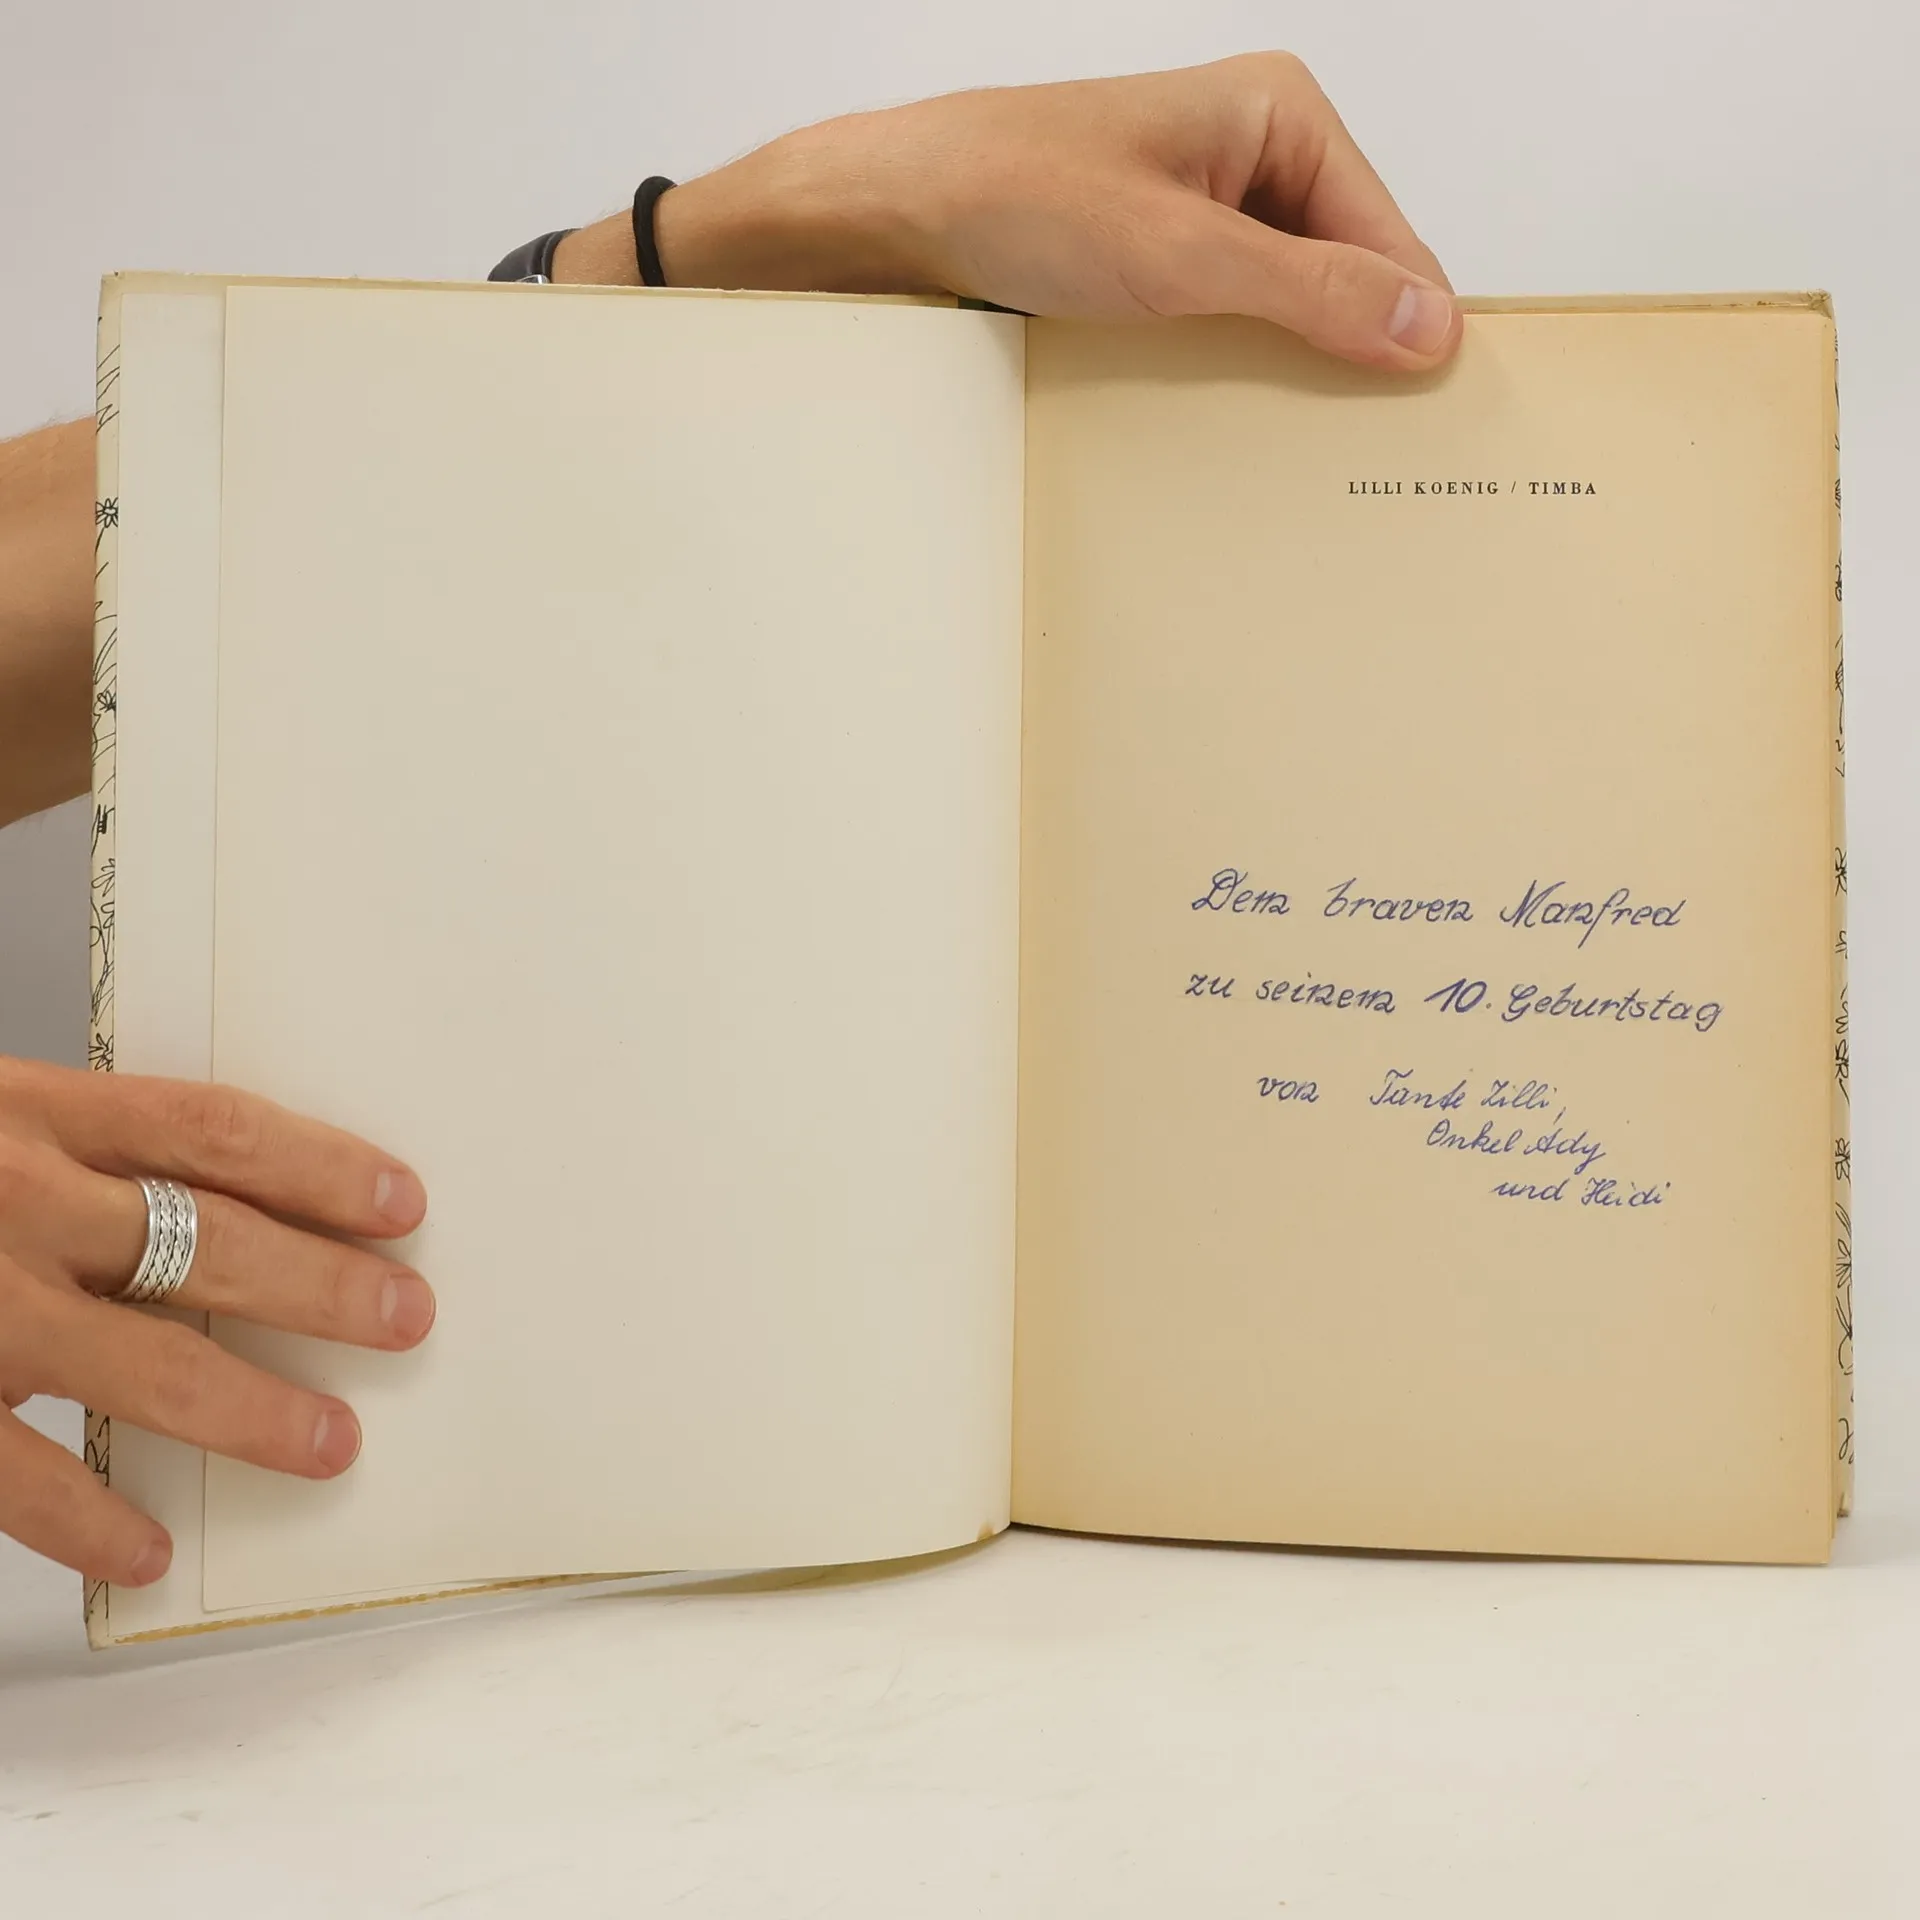 LILLI KOENIG / TIMBA
Dem braven Manfred
zu seinem 10. Geburtstag
von Tante Lilli,
Onkel Ady
und Heidi